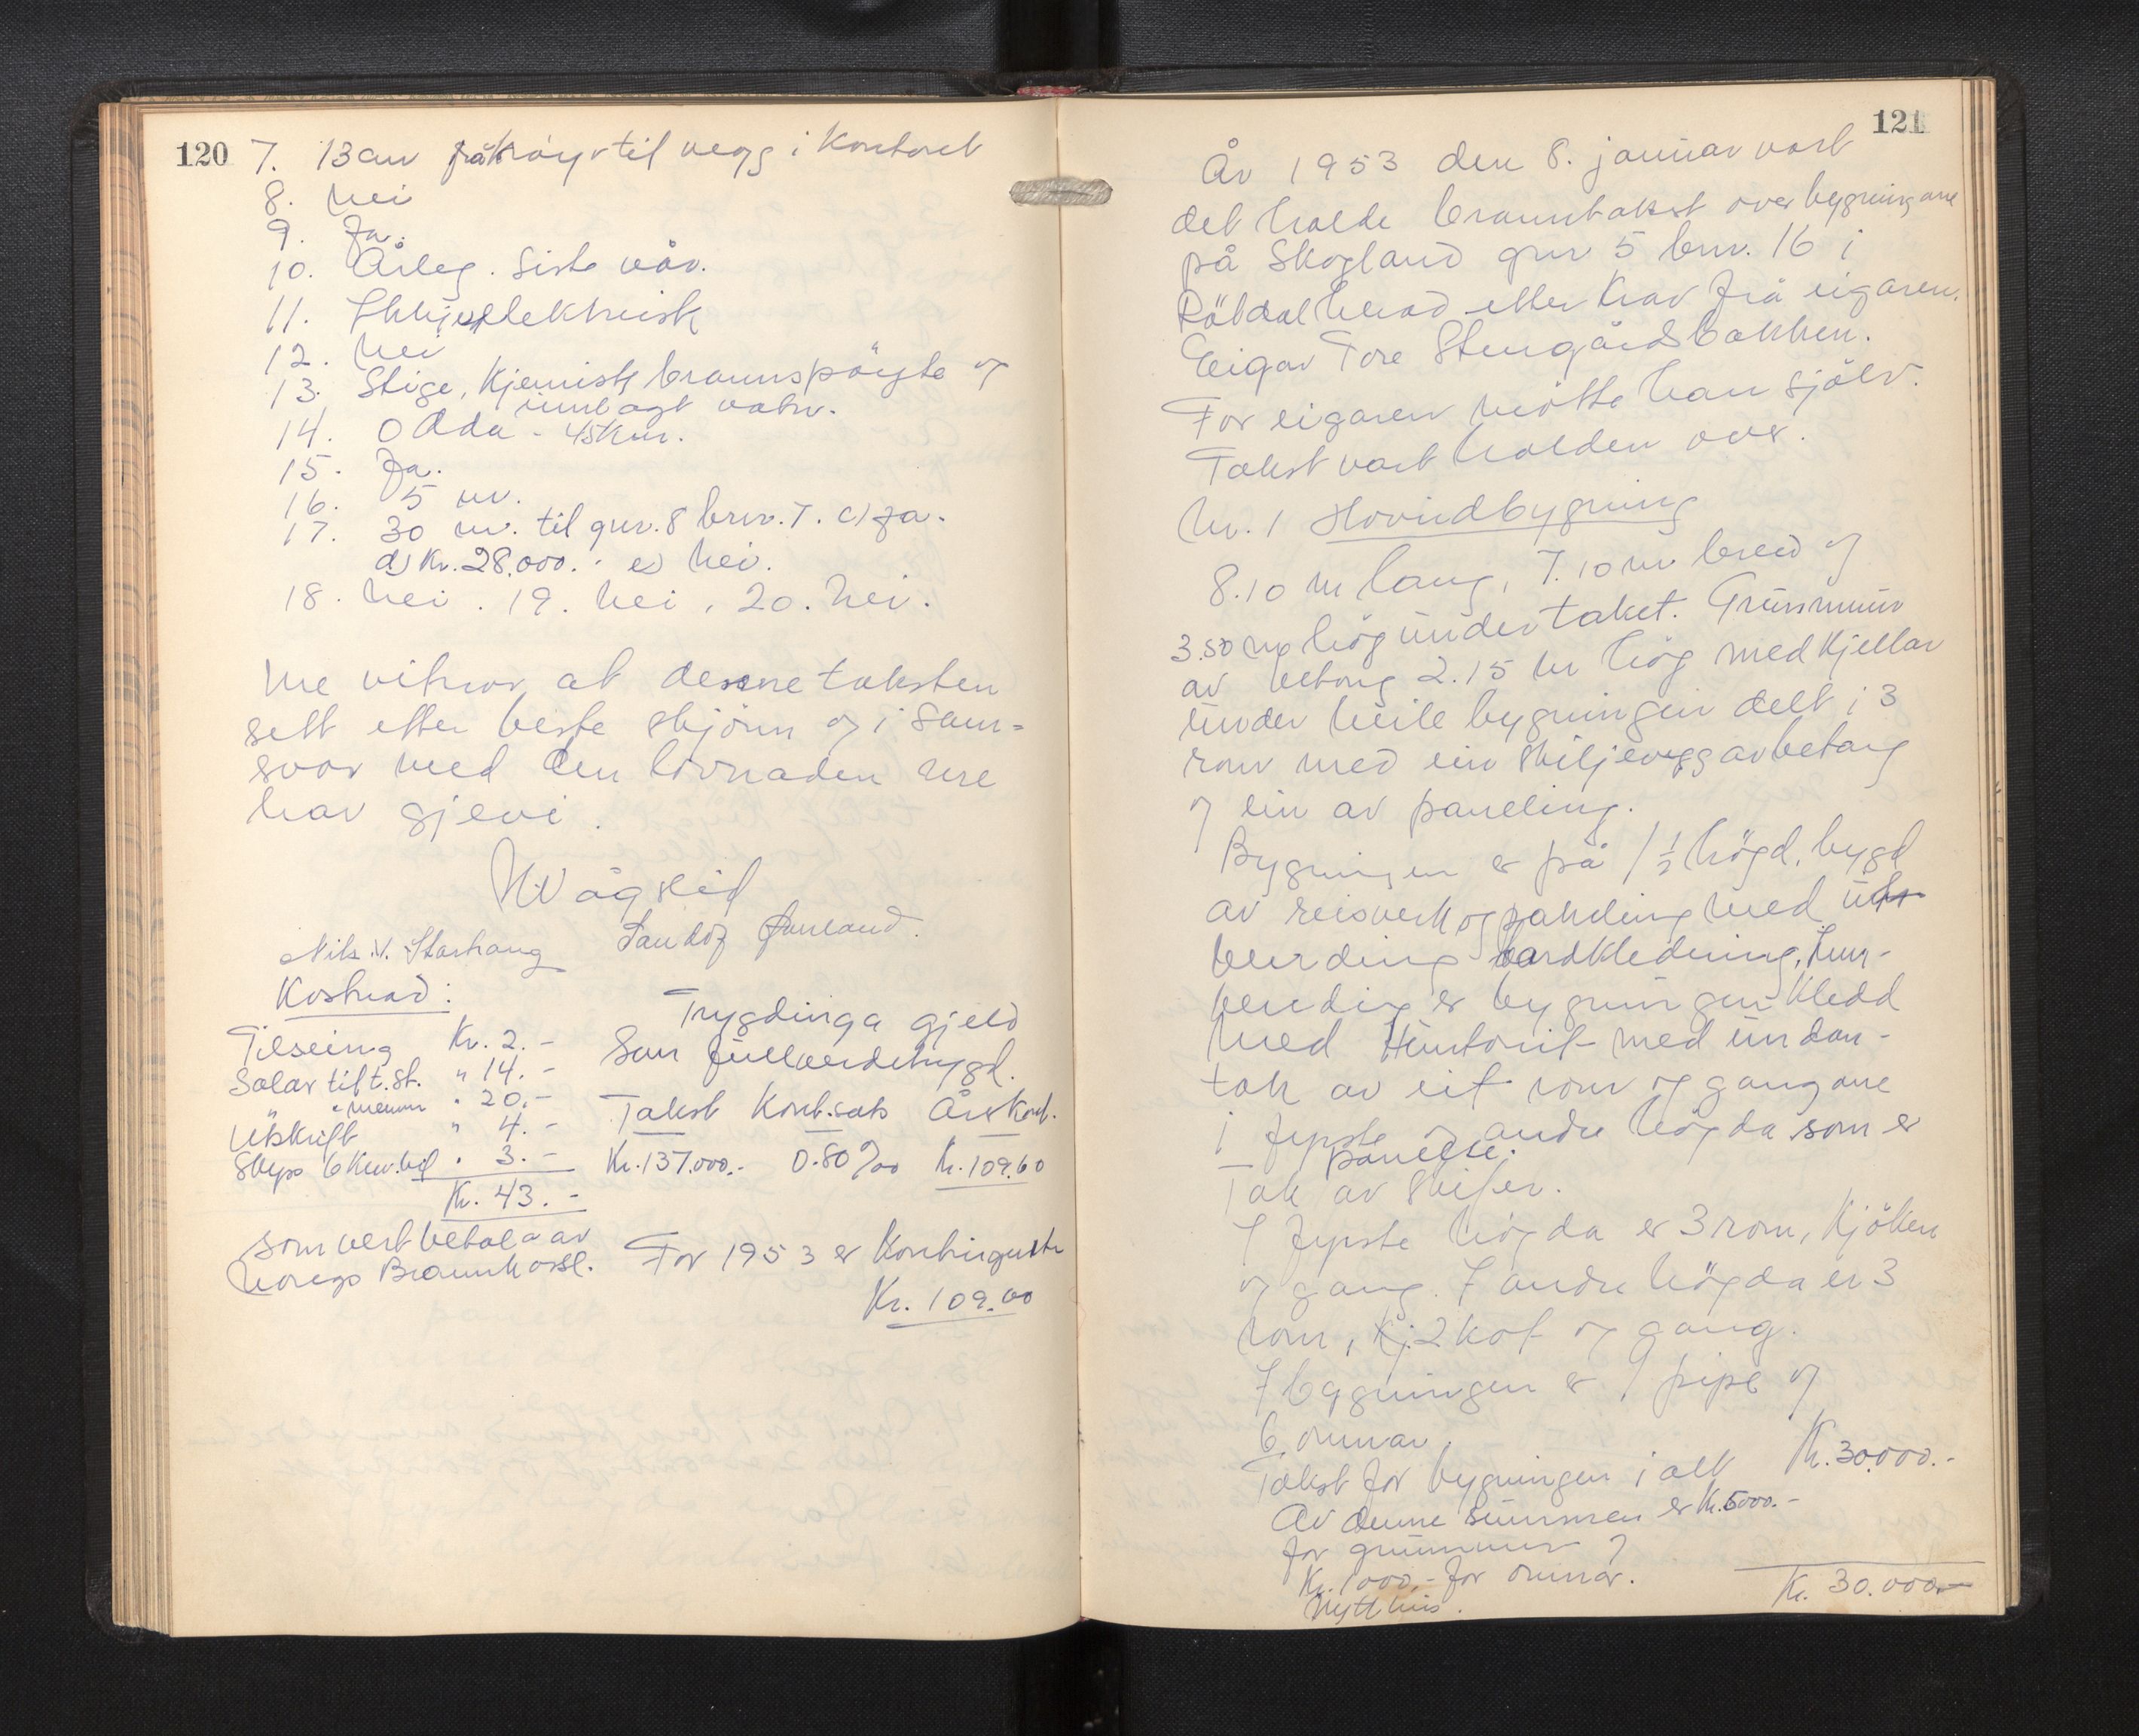 120
7. 13 cm frå røyr til vegg i kontoret
8. Nei
9. Ja.
10. Årleg. Siste vår.
11. Ikkje elektrisk
12. Nei
13. Stige, Kjemisk brannspöyte og
innlagt vatn.
14. Odda - 45 km.
15. Ja.
16. 5 m.
17. 30 m. til gnr. 8 brnr. 7. c) Ja.
d) Kr. 28.000.- e) Nei.
18. Nei. 19. Nei, 20. Nei.
Me vitnar at denne taksten
sett etter beste skjönn og i sam=
svar med den lovnaden me
har gjeve.
Wågslid
Nils V. Starhaug
Kostnad:
Tilseing Kr. 2.-
Salar til t.st. " 14.-
" " menn " 20.-
Utskrift " 4.-
Skyss 6 km. bil " 3.-
Kr. 43.-
som vert betala av
Noregs Brannkasse.
Trygdinga gjeld
som fullverdetrygd.
Takst Kont.sats Årskont.
Kr. 137.000.- 0.80 ‰ Kr. 109.60
For 1953 er Kontingenten
Kr. 109.00
121
År 1953 den 8. januar vart
det halde branntakst over bygningane
på Skogland gnr 5 brnr. 16 i
Röldal herad etter krav frå eigaren.
Eigar Tore Stengårdsbakken.
For eigaren mötte han sjölv.
Takst vart halden over.
Nr. 1 Hovudbygning
8.10 m lang, 7.10 m breid og
3.50 m hög under taket. Grunnmur
av betong 2.15 m hög med Kjellar
under heile bygningen delt i 3
rom med ein skiljevegg av betong
og ein av paneling.
Bygningen er på 1 1/2 högd, bygd
av reisverk og paneling med ut-
vending bordkledning. Inn-
vendig er bygningen kledd
med Huntonit med undan-
tak av eit rom og gangane
i fyrste og andre högda som er
panelte.
Tak av skifer.
I fyrste högda er 3 rom, Kjöken
og gang. I andre högda er 3
rom, kj. 2 kot og gang.
I bygningen er 1 pipe og
6 omnar.
Takst for bygningen i alt Kr. 30.000.-
Av denne summen er Kr. 5000.-
for grunnmur og
Kr. 1000.- for omnar.
Nytt hus.
Kr. 30.000.-